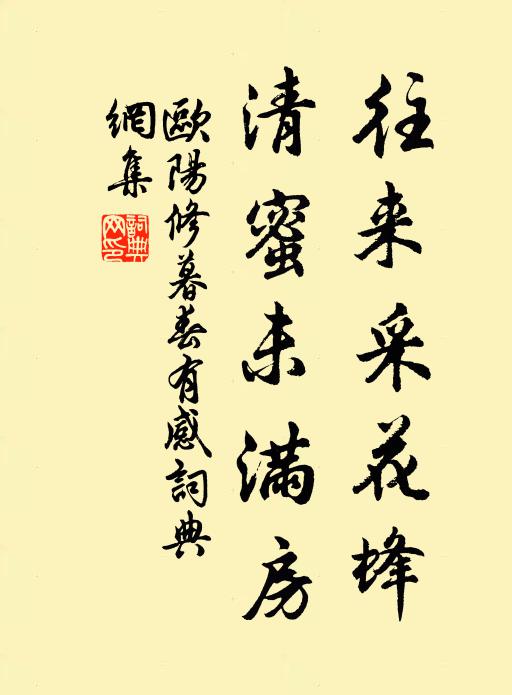 往来采花蜂
清蜜未满房
歐陽修暮春有感詞典
網集
詞典
网印